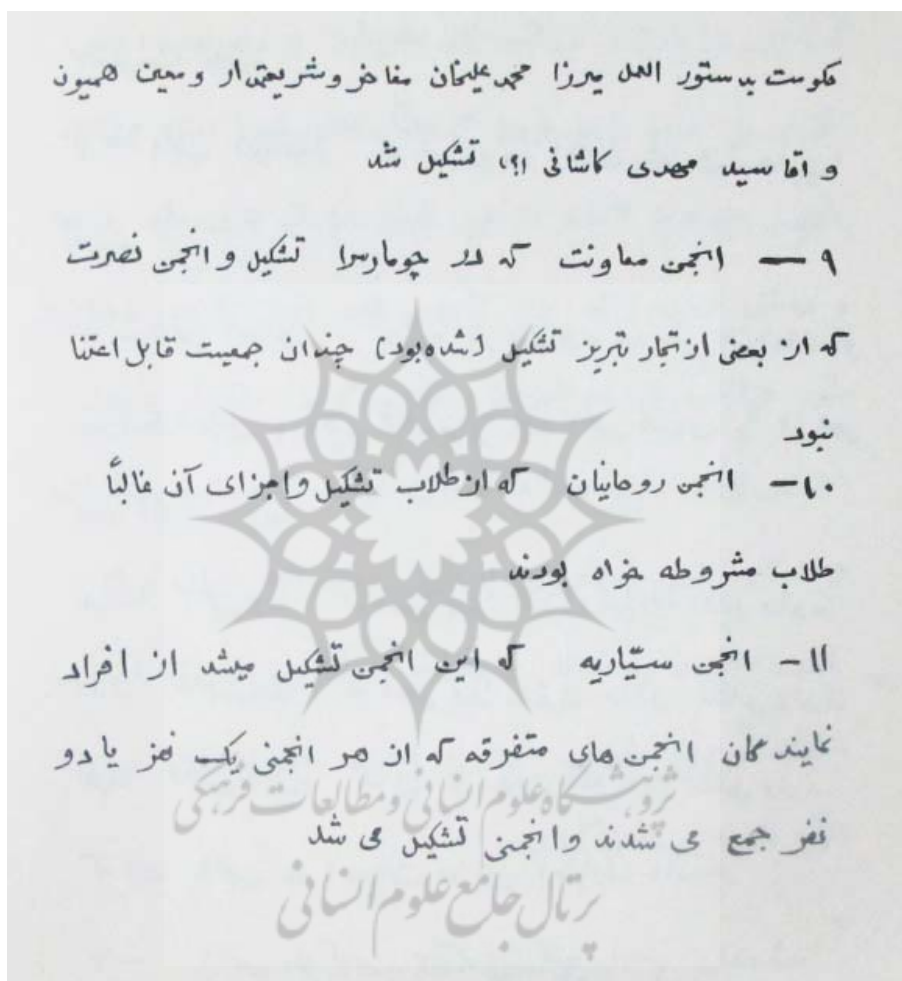 حکومت بدستور العمل میرزا محمد علیخان مفاخر و شریعتمدار و معین همیون
و اقا سید مهدی کاشانی (؟) تشکیل شد
۹ — انجمن معاونت که در چومارسرا تشکیل و انجمن نصرت
که از بعضی از تجار تبریز تشکیل (شده بود) چندان جمعیت قابل اعتنا
نبود
۱۰ — انجمن روحانیان که از طلاب تشکیل و اجزای آن غالباً
طلاب مشروطه خواه بودند
۱۱ — انجمن سیّاریه که این انجمن تشکیل میشد از افراد
نمایندگان انجمن های متفرقه که از هر انجمنی یک نفر یا دو
نفر جمع می شدند و انجمنی تشکیل می شد
پژوهشگاه علوم انسانی و مطالعات فرهنگی
پرتال جامع علوم انسانی